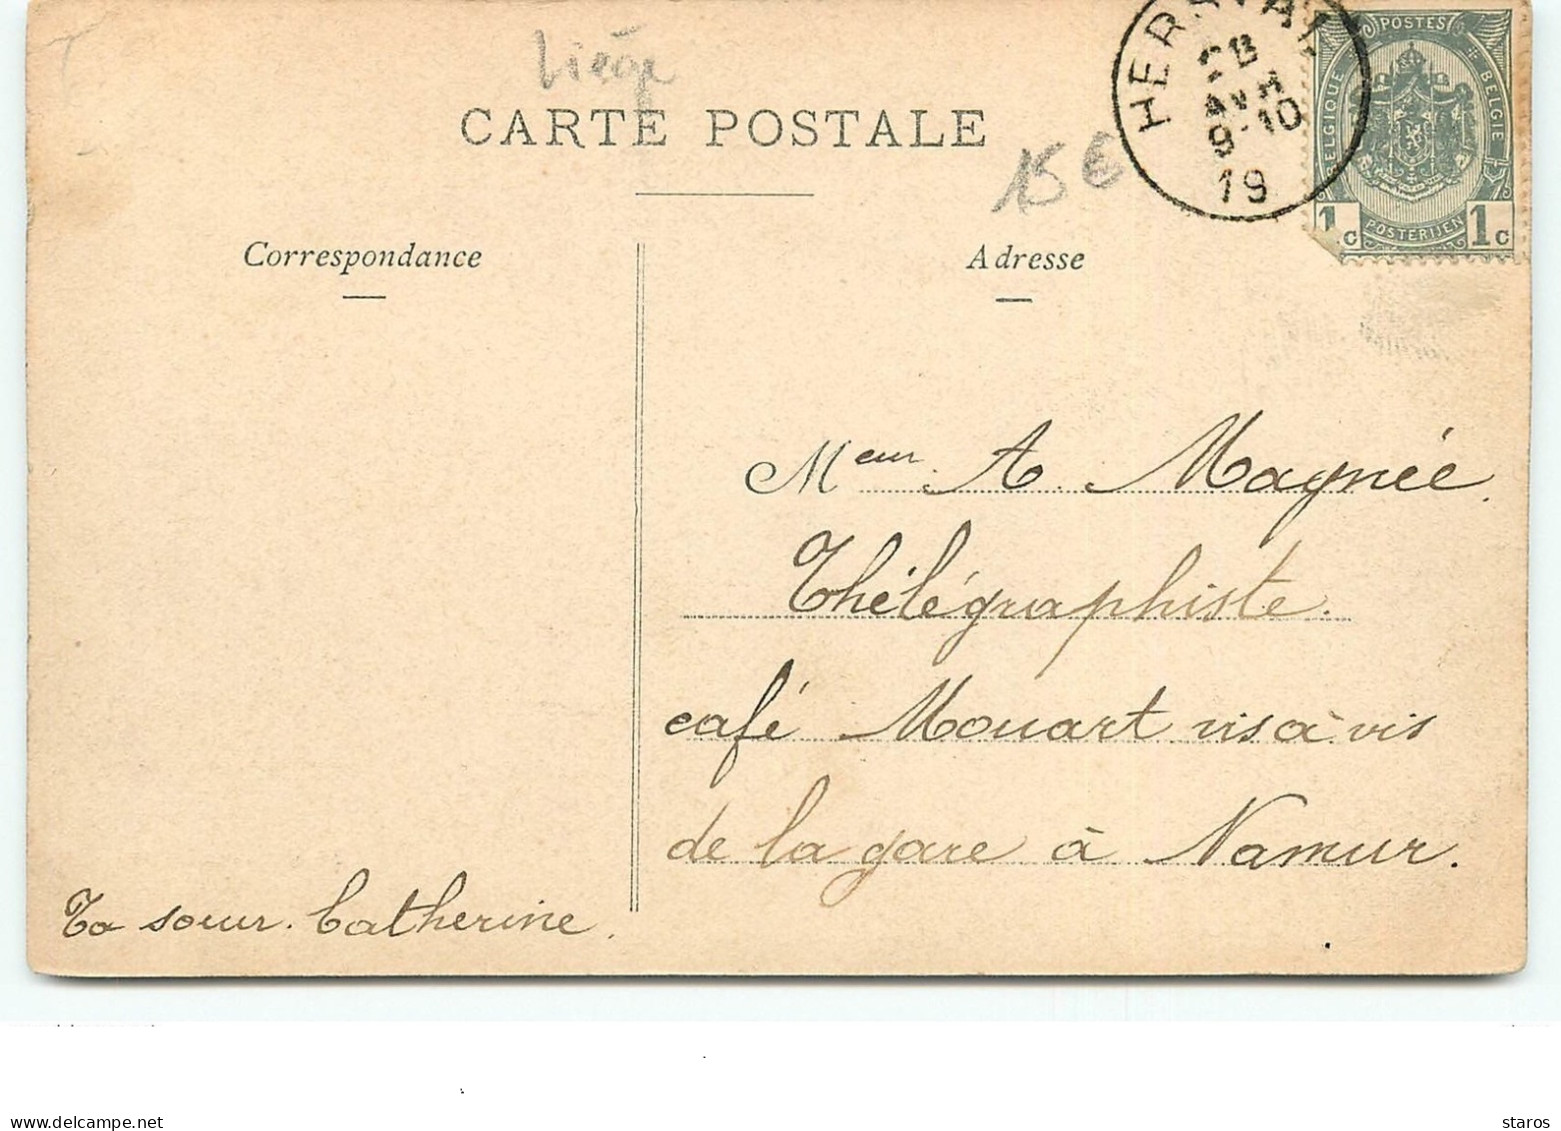 Liége
CARTE POSTALE
15 €
HERSTAL
AVR
9-10
19
POSTES
BELGIQUE
BELGIE
1c POSTERIJEN 1c
Correspondance
Adresse
Meur A. Magnée.
Thélégraphiste.
café Mouart vis à vis
de la gare à Namur.
Ta soeur. Catherine.
www.delcampe.net
staros